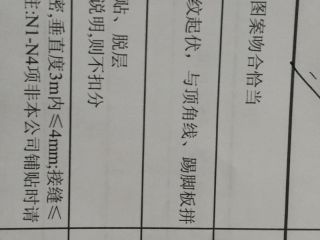 图案吻合恰当
纹起伏，与顶角线、踢脚板拼
贴、脱层
说明,则不扣分
密,垂直度3m内≤4mm;接缝≤
注:N1-N4项非本公司铺贴时请